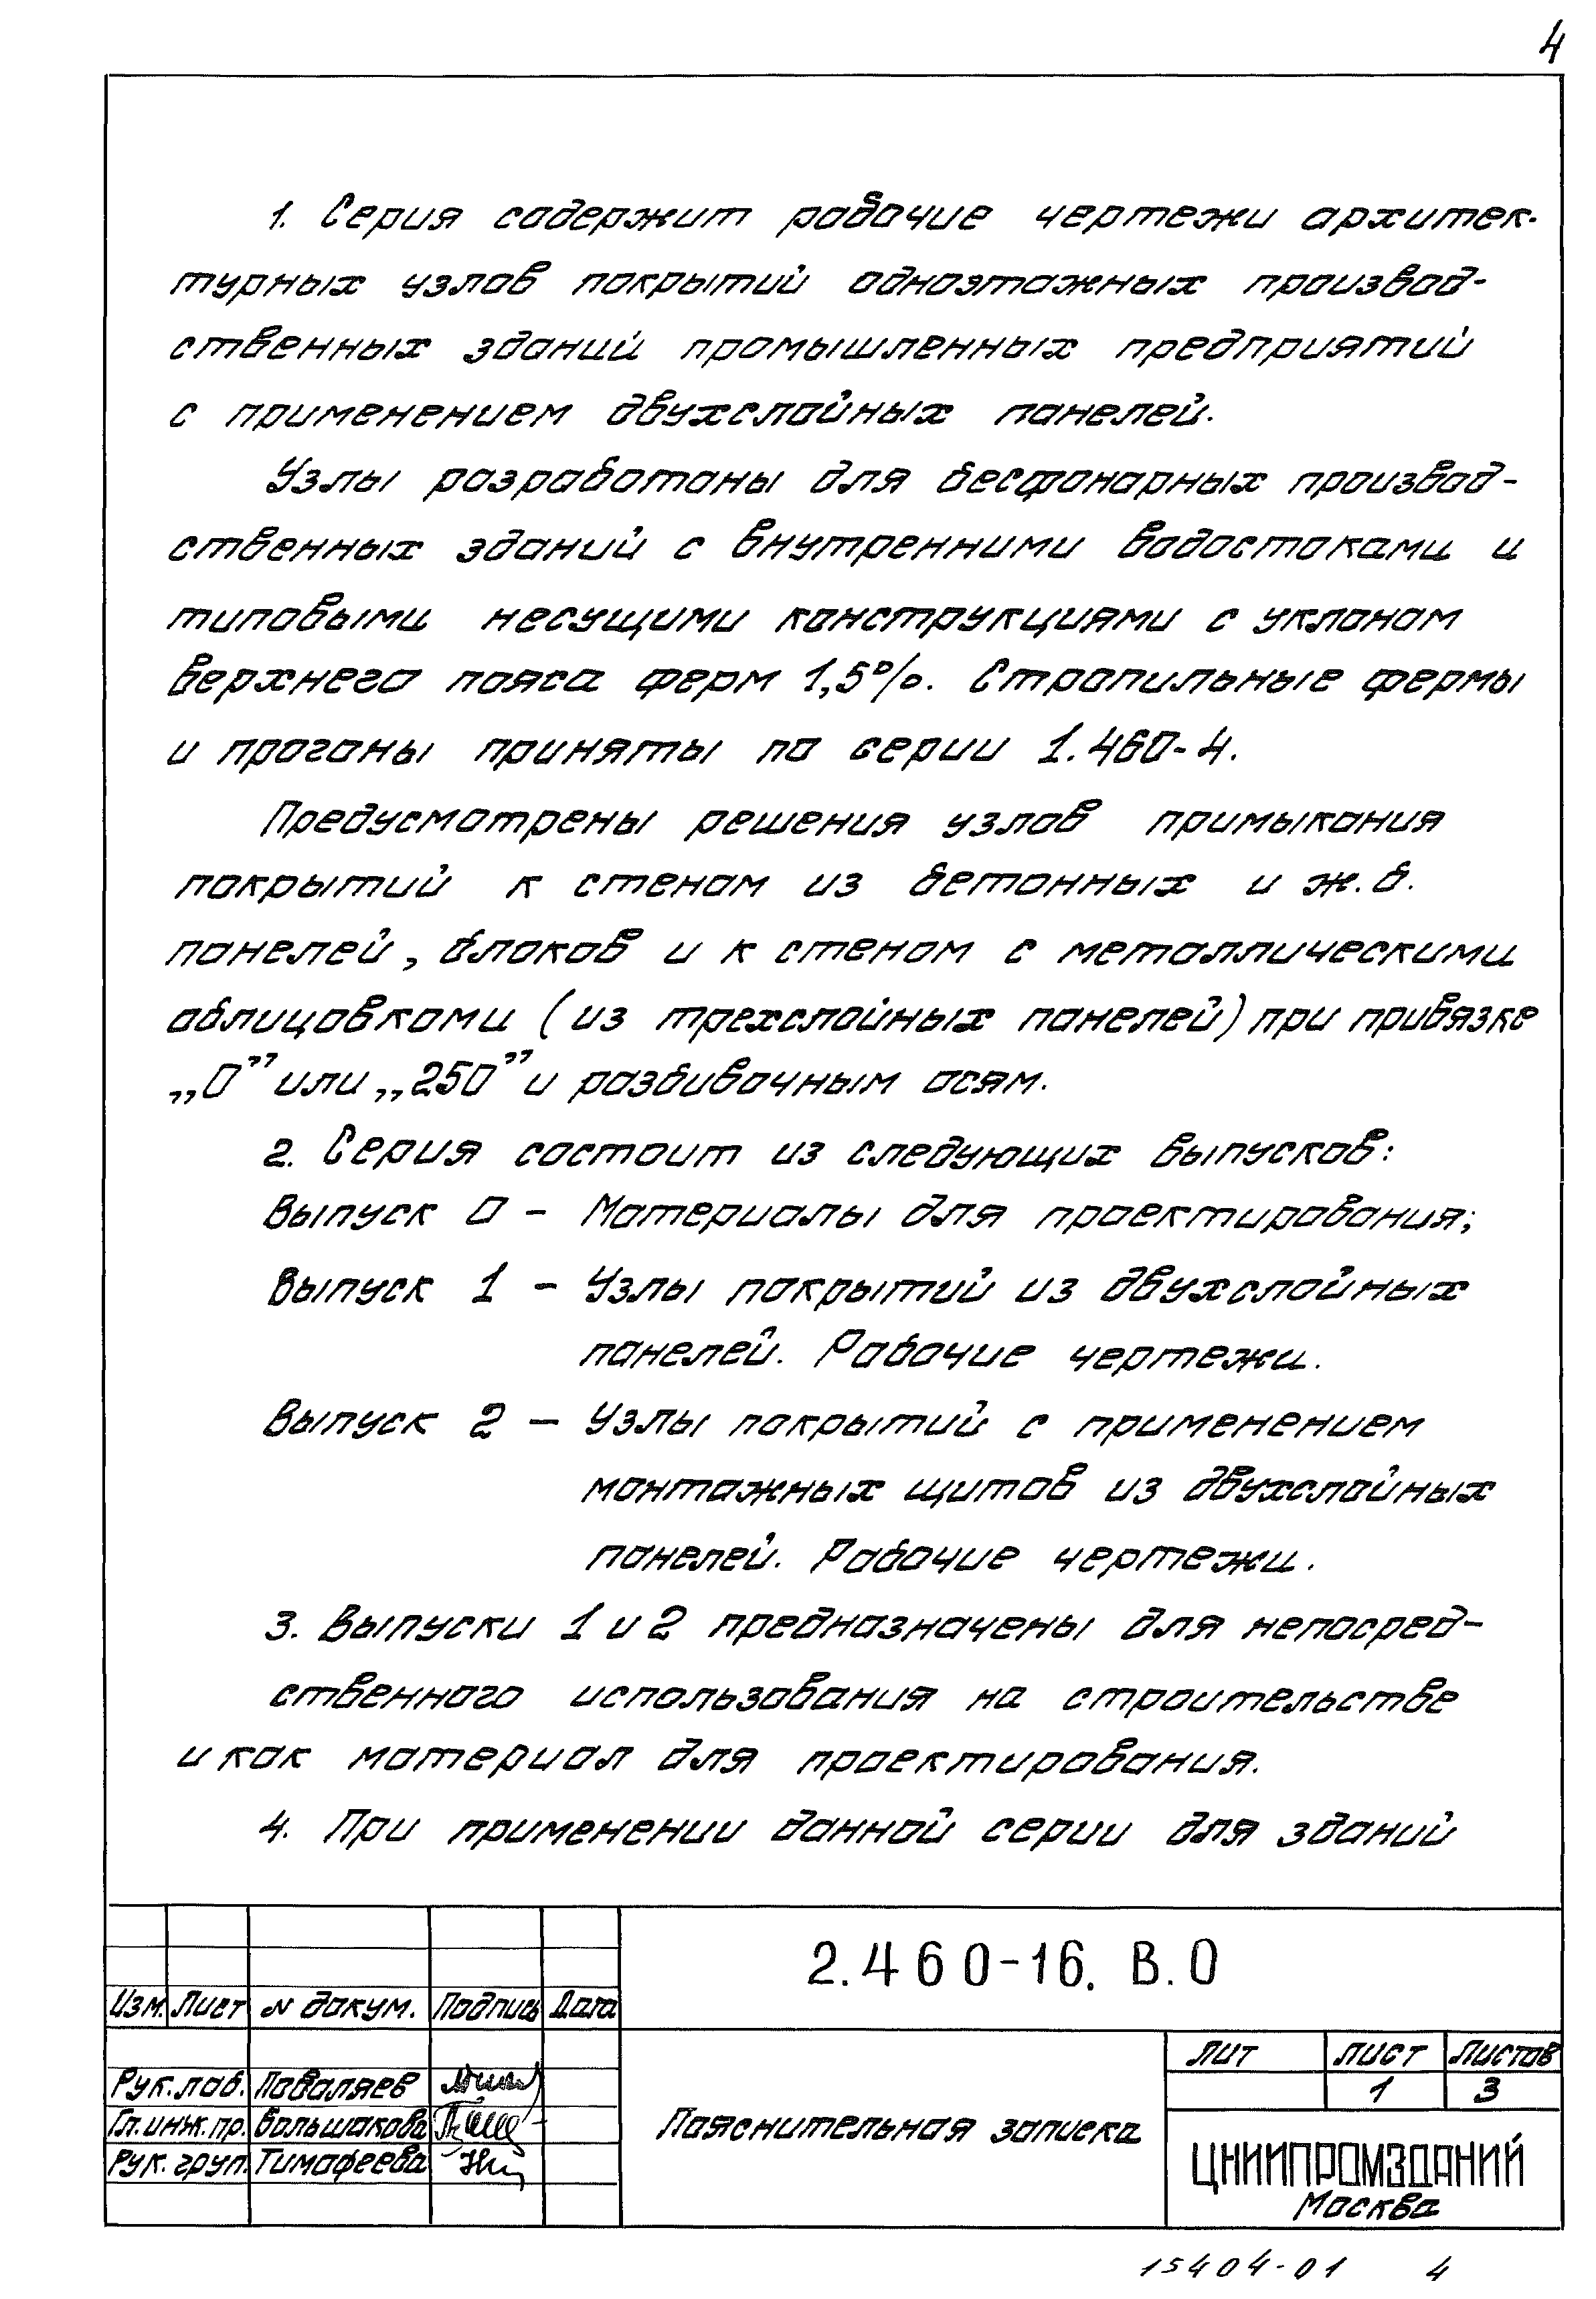 4
1. Серия содержит рабочие чертежи архитек-
турных узлов покрытий одноэтажных производ-
ственных зданий промышленных предприятий
с применением двухслойных панелей.
Узлы разработаны для бесфонарных производ-
ственных зданий с внутренними водостоками и
типовыми несущими конструкциями с уклоном
верхнего пояса ферм 1,5%. Стропильные фермы
и прогоны приняты по серии 1.460-4.
Предусмотрены решения узлов примыкания
покрытий к стенам из бетонных и ж.б.
панелей, блоков и к стенам с металлическими
облицовками (из трехслойных панелей) при привязке
„0” или „250” и разбивочным осям.
2. Серия состоит из следующих выпусков:
Выпуск 0 – Материалы для проектирования;
Выпуск 1 – Узлы покрытий из двухслойных
панелей. Рабочие чертежи.
Выпуск 2 – Узлы покрытий с применением
монтажных щитов из двухслойных
панелей. Рабочие чертежи.
3. Выпуски 1 и 2 предназначены для непосред-
ственного использования на строительстве
и как материал для проектирования.
4. При применении данной серии для зданий
2.460-16. В.0
Изм. Лист N докум. Подпись Дата
Рук. лаб. Поваляев
Гл. инж. пр. Большакова
Рук. груп. Тимофеева
Пояснительная записка
лит лист листов
1 3
ЦНИИПРОМЗДАНИЙ
Москва
15404-01 4